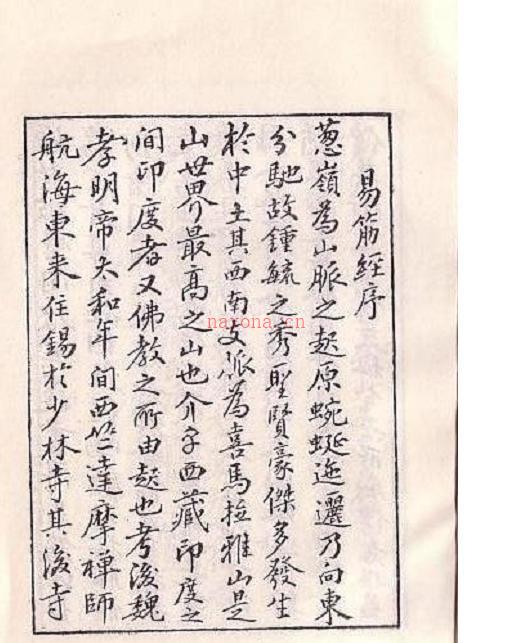 易筋經序
葱嶺為山脈之起原蜿蜒迤邐乃向東
分馳故鍾毓之秀聖賢豪傑多發生
於中土其西南支派為喜馬拉雅山是
山世界最高之山也介乎西藏印度之
間印度者又佛教之所由起也考後魏
孝明帝太和年間西竺達摩禪師
航海東来住錫於少林寺其後寺
nayona.cn